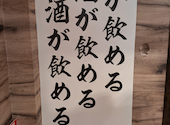 が飲める
酒が飲める
酒が飲める